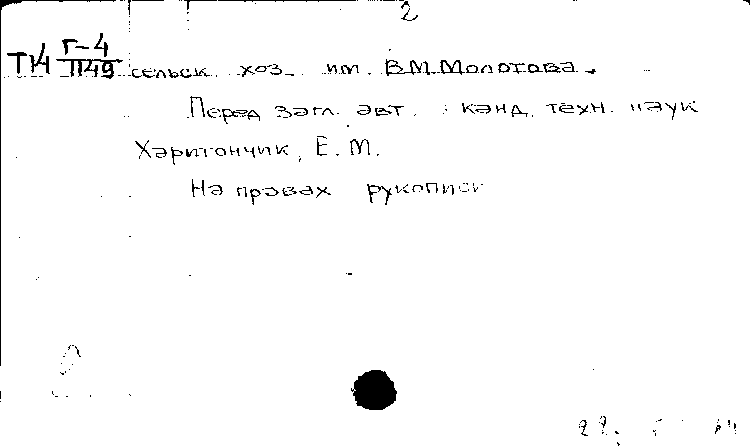 2
Т14 Г-4
1149 сельск. хоз. им. В.М.Молотова.
Перед загл. авт.: канд. техн. наук
Харитончик, Е.М.
На правах рукописи